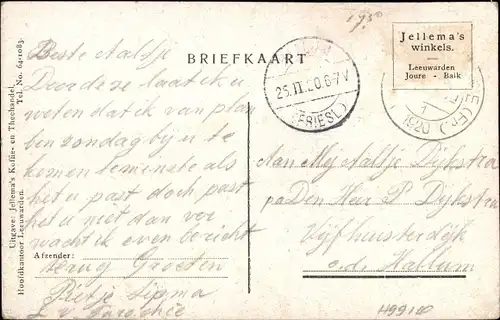 17.50
BRIEFKAART
Jellema's
winkels.
Leeuwarden
Joure - Balk
25.II.20.6-7V
(FRIESL.)
1920
Beste Aaltje
Door deze laat ik u
weten dat ik van plan
ben zondag bij u te
komen teminste als
het u past doch past
het u niet dan ver
wacht ik even bericht
Afzender:
terug Groeten
Pietje Sipma
Aan Mej Aaltje Dijkstra
pa Den Heer P Dijkstra
Vijfhuisterdijk
o.d. Hallum
Uitgave: Jellema's Koffie- en Theehandel.
Hoofdkantoor Leeuwarden. Tel. No. 64-1083.